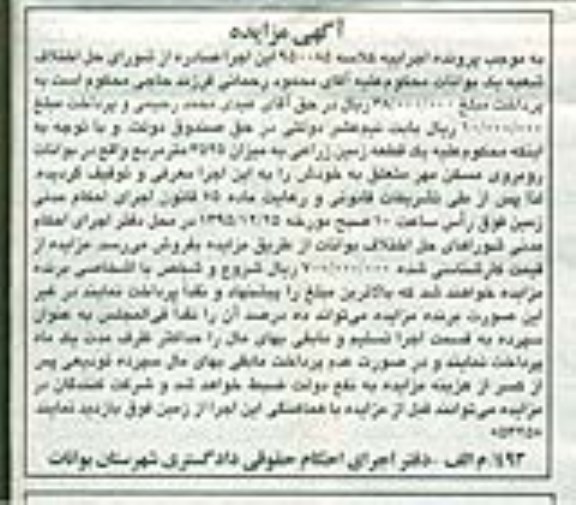 آگهی مزایده
به موجب پرونده اجراییه کلاسه این اجرا صادره از شورای حل اختلاف
شعبه یک بوانات محکوم‌علیه آقای محمود رحمانی فرزند حاجی محکوم است به
پرداخت مبلغ ریال در حق آقای عبدی محمد رحیمی و پرداخت مبلغ
ریال بابت نیم‌عشر دولتی در حق صندوق دولت و با توجه به
اینکه محکوم‌علیه یک قطعه زمین زراعی به میزان مترمربع واقع در بوانات
روبروی مسکن مهر متعلق به خودش را به این اجرا معرفی و توقیف گردیده
لذا پس از طی تشریفات قانونی و رعایت ماده قانون اجرای احکام مدنی
زمین فوق رأس ساعت ۱۰ صبح مورخه ۱۳۹۵/۱۲/۲۵ در محل دفتر اجرای احکام
مدنی شوراهای حل اختلاف بوانات از طریق مزایده بفروش می‌رسد مزایده از
قیمت کارشناسی شده ریال شروع و شخص یا اشخاصی برنده
مزایده خواهند شد که بالاترین مبلغ را پیشنهاد و نقداً پرداخت نمایند در غیر
این صورت برنده مزایده می‌تواند ده درصد آن را نقداً فی‌المجلس به عنوان
سپرده به قسمت اجرا تسلیم و مابقی بهای مال را حداکثر ظرف مدت یک ماه
پرداخت نمایند و در صورت عدم پرداخت مابقی بهای مال سپرده تودیعی پس
از کسر از هزینه مزایده به نفع دولت ضبط خواهد شد و شرکت کنندگان در
مزایده می‌توانند قبل از مزایده با هماهنگی این اجرا از زمین فوق بازدید نمایند
م الف - دفتر اجرای احکام حقوقی دادگستری شهرستان بوانات